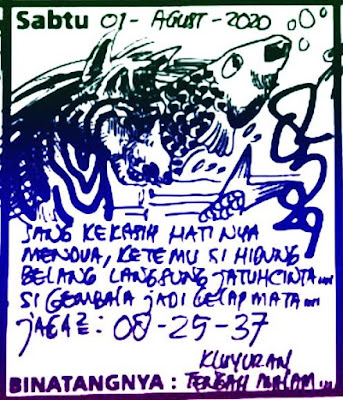 Sabtu 01 - AGUST - 2020
SANG KEKASIH HATINYA
MENDUA, KETEMU SI HIDUNG
BELANG LANGSUNG JATUH CINTA....
SI GEMBALA JADI GELAP MATA....
JAGA2 : 08-25-37
KLUYURAN
BINATANGNYA : TENGAH MALAM...